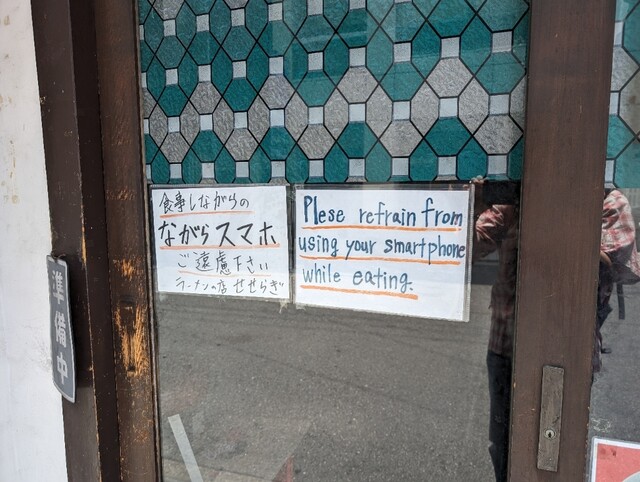 食事しながらの
ながらスマホ
ご遠慮下さい
ラーメンの店 せせらぎ
Plese refrain from
using your smartphone
while eating.
準備中